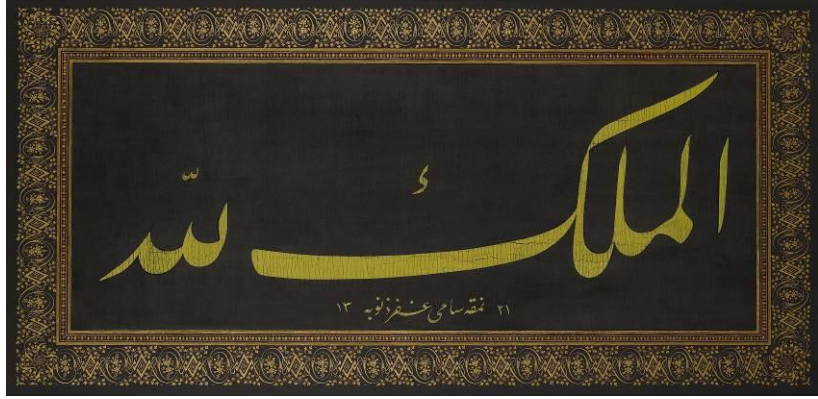 الملك لله
٢١ نمقه سامی غفر ذنوبه ١٣